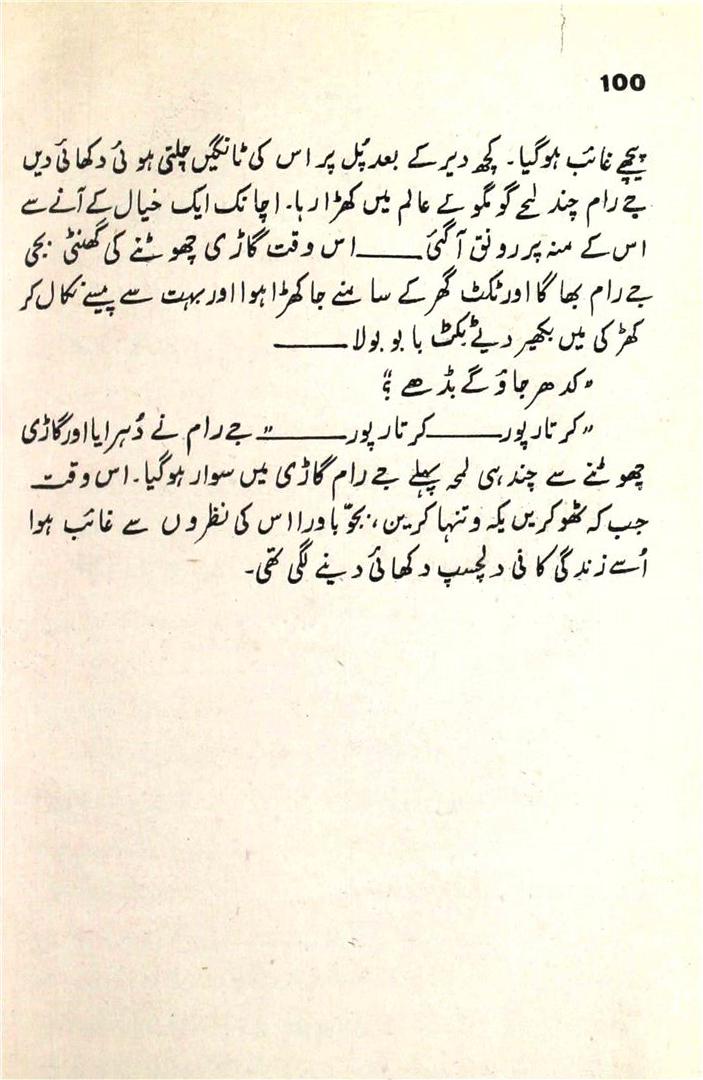 100
پیچھے غائب ہوگیا۔ کچھ دیر کے بعد پُل پر اس کی ٹانگیں چلتی ہوئی دکھائی دیں
جے رام چند لمحے گومگو کے عالم میں کھڑا رہا۔ اچانک ایک خیال کے آنے سے
اس کے منہ پر رونق آگئی ــــــ اس وقت گاڑی چھوٹنے کی گھنٹی بجی
جے رام بھاگا اور ٹکٹ گھر کے سامنے جا کھڑا ہوا اور بہت سے پیسے نکال کر
کھڑکی میں بکھیر دیئے ٹکٹ بابو بولا ــــــ
"کدھر جاؤ گے بڈھے؟"
"کرتارپور ــــــ کرتارپور ــــــ" جے رام نے دُہرایا اور گاڑی
چھوٹنے سے چند ہی لمحہ پہلے جے رام گاڑی میں سوار ہوگیا۔ اس وقت
جب کہ ٹھوکریں یکہ و تنہا کرین، بجوّ باورا اس کی نظروں سے غائب ہوا
اُسے زندگی کافی دلچسپ دکھائی دینے لگی تھی۔